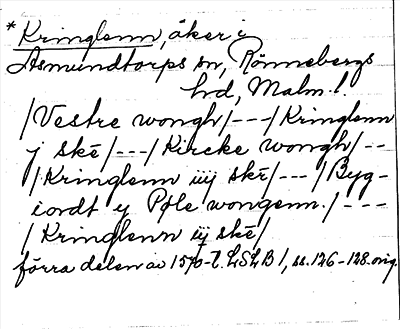 * Kringlenn, åker i
Asmundtorps sn, Rönnebergs
hd, Malm. l.
/Vestre wongh/---/Kringlenn
j skē/---/Kircke wongh/--
-/Kringlenn iiij skē/---/Byg-
iordt y Pøle wongenn./---
/Kringlenn iij skē/
förra delen av 1570-t. LSLB 1, ss. 126-128. orig.